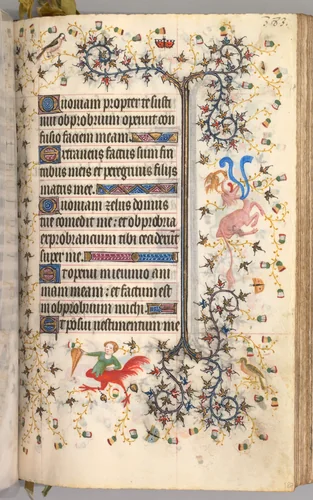 Quoniam propter te susti
nui obprobrium operuit con
fusio faciem meam.
Extraneus factus sum fra
tribus meis et peregrinus filijs
matris mee.
Quoniam zelus domus
tue comedit me: et obprobria
exprobrancium tibi ceciderut
super me.
Et operui in ieiunio ani
mam meam: et factum est
in obprobrium michi.
Et posui uestimentum me